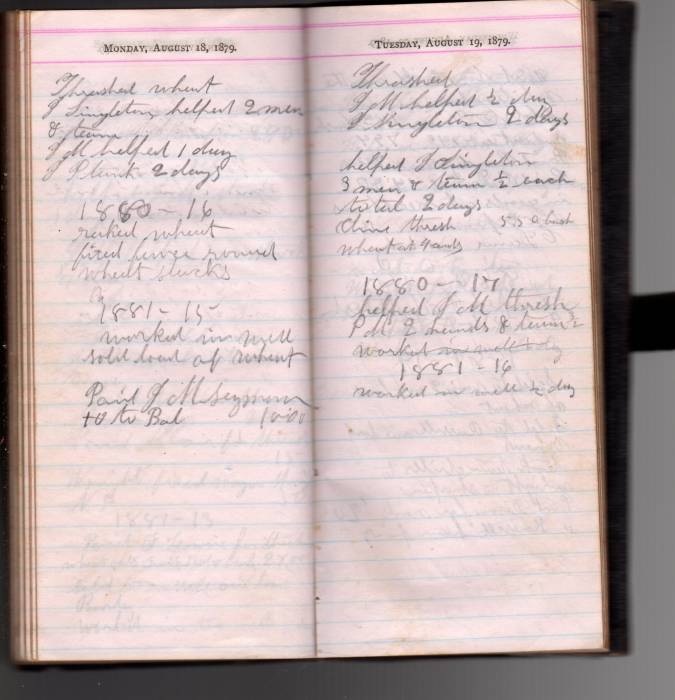 MONDAY, AUGUST 18, 1879.
Thrashed wheat
J Singleton helped 2 men
& team
J M helped 1 day
J Plunk 2 days
1880 - 16
raked wheat
fixed fence round
wheat stacks
1881 - 15
worked in well
sold load of wheat
Paid J M Seymour
to Bal 10.00
TUESDAY, AUGUST 19, 1879.
Thrashed
J M helped ½ day
J Singleton 2 days
helped J Singleton
3 men & team ½ each
total 2 days
done thresh 550 bush
wheat at 4 cents
1880 - 17
helped J M thresh
P M 2 hands & team ½
worked in well ½ day
1881 - 16
worked in well ½ day